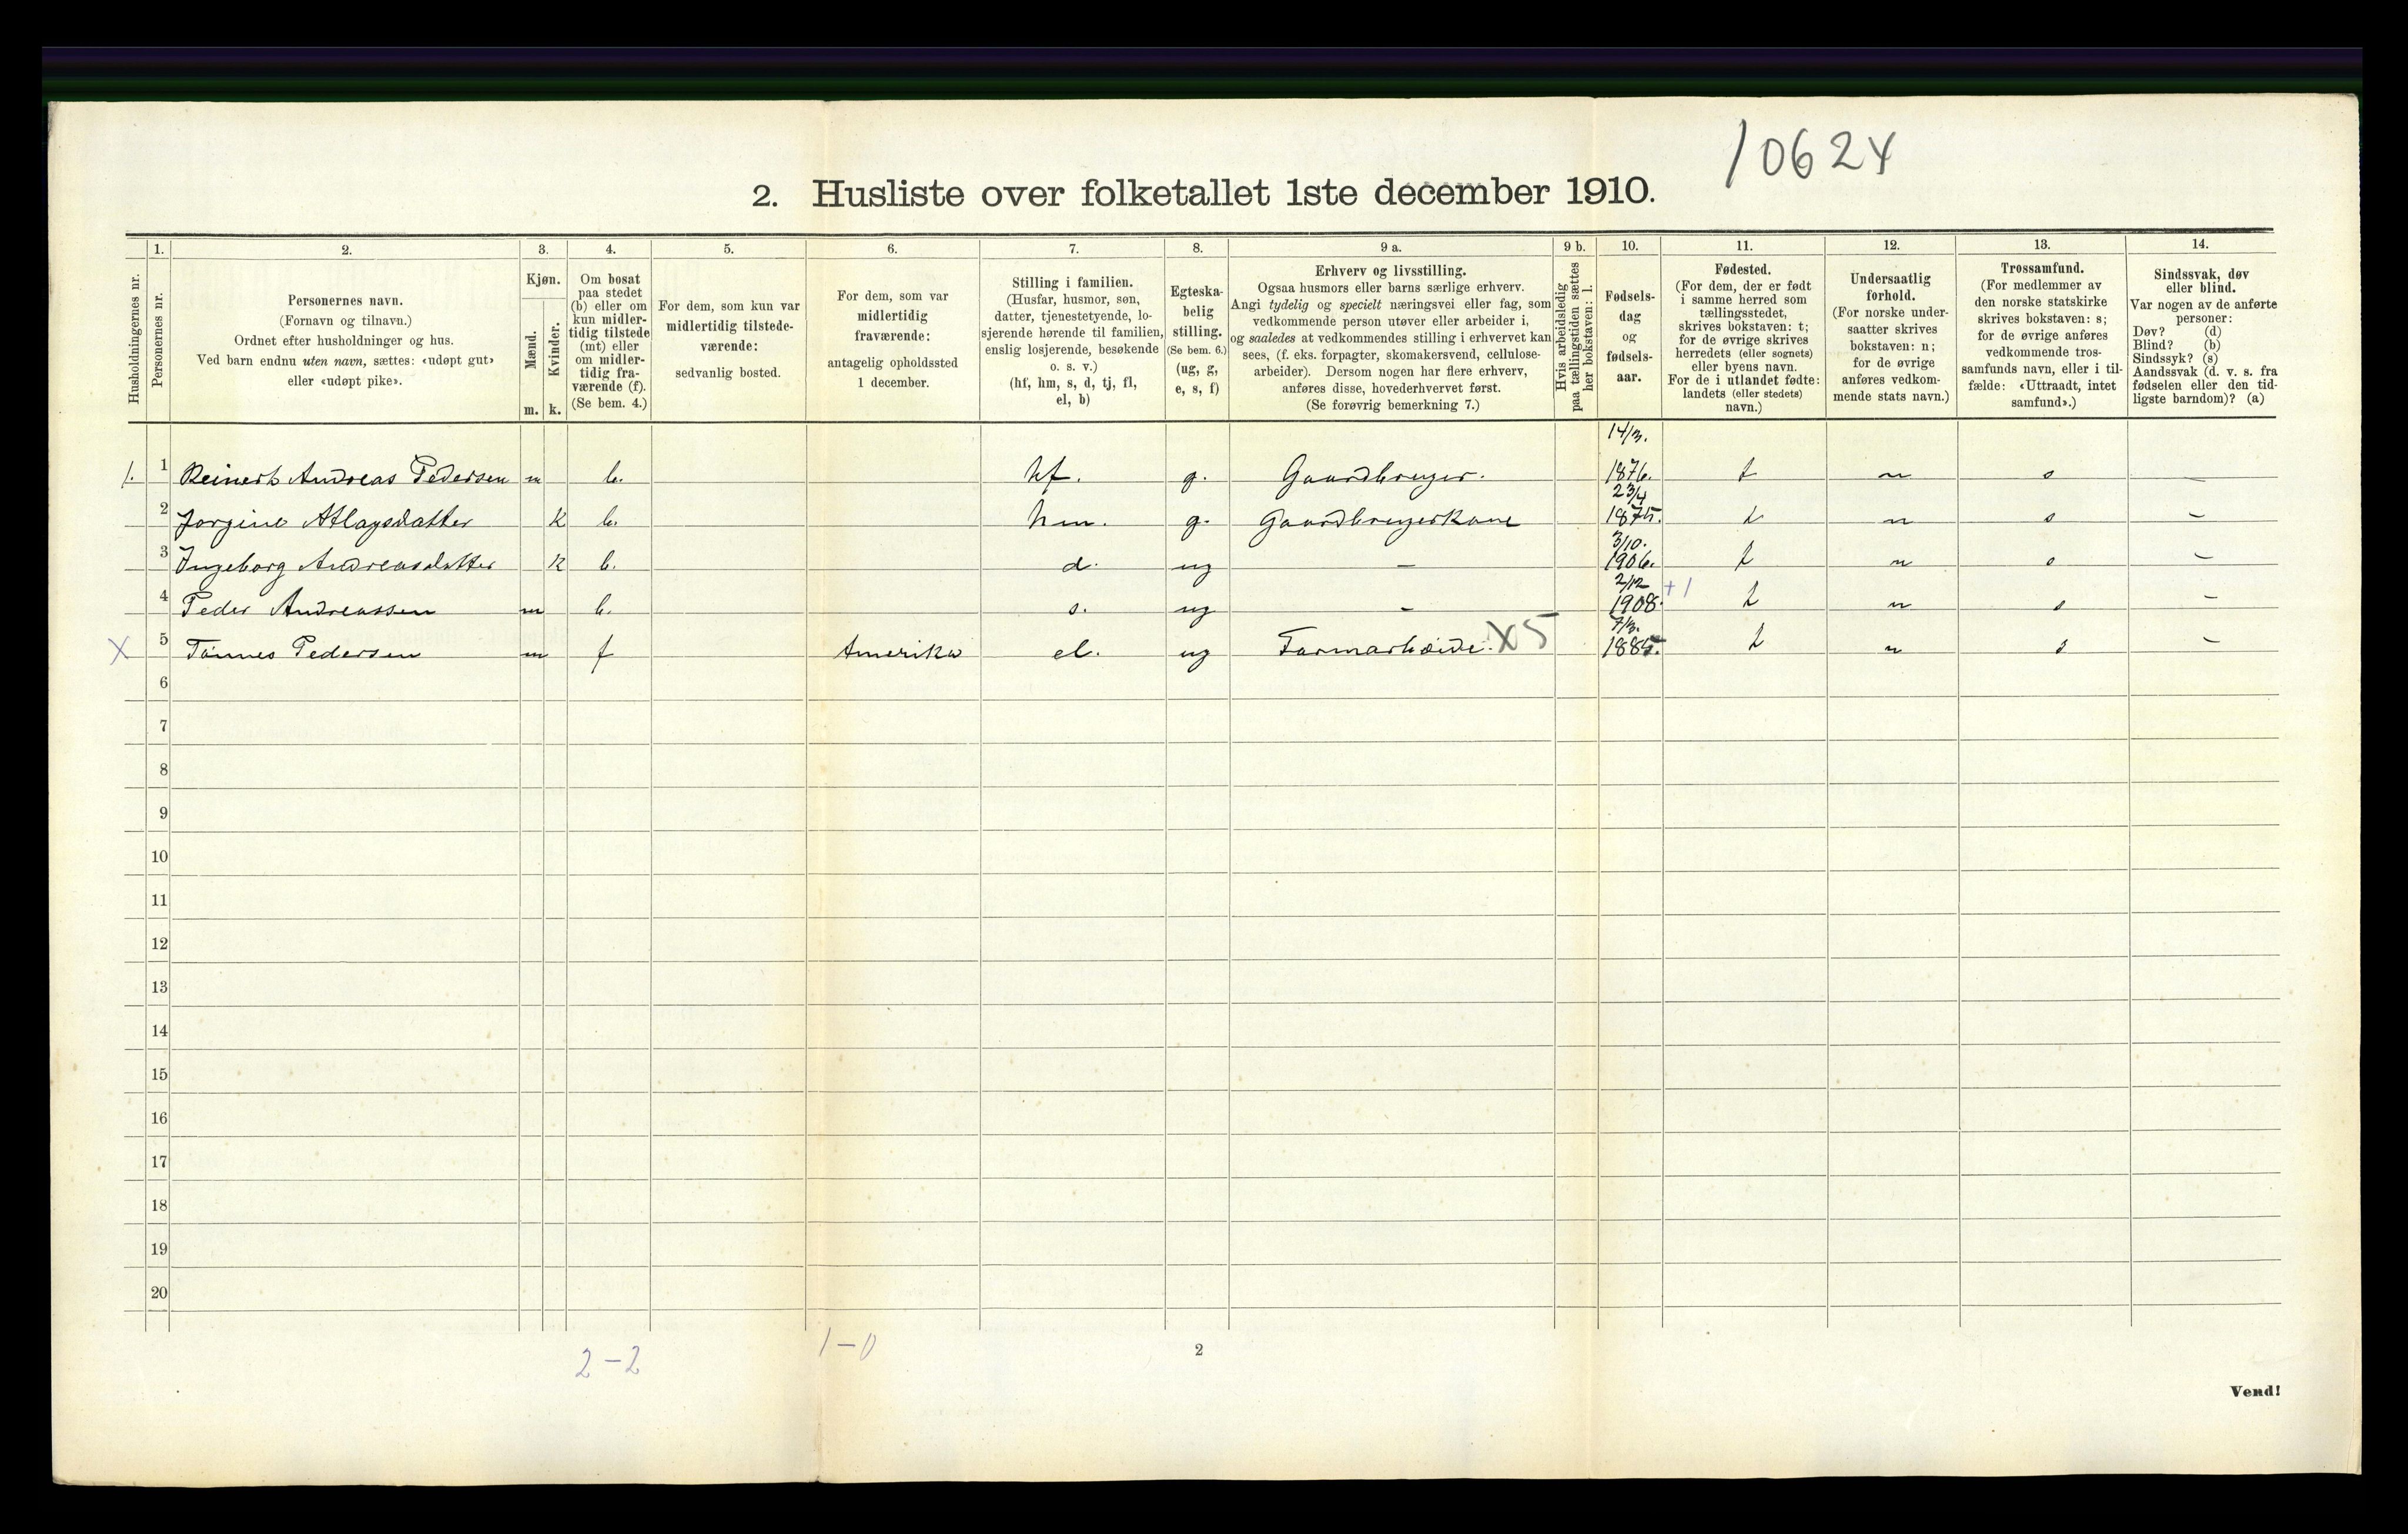 10624
2. Husliste over folketallet 1ste december 1910.
Husholdningernes nr.
1. Personernes nr.
2. Personernes navn.
(Fornavn og tilnavn.)
Ordnet efter husholdninger og hus.
Ved barn endnu uten navn, sættes: «udøpt gut»
eller «udøpt pike».
3. Kjøn.
Mænd. m.
Kvinder. k.
4. Om bosat
paa stedet
(b) eller om
kun midler-
tidig tilstede
(mt) eller
om midler-
tidig fra-
værende (f).
(Se bem. 4.)
5. For dem, som kun var
midlertidig tilstede-
værende:
sedvanlig bosted.
6. For dem, som var
midlertidig
fraværende:
antagelig opholdssted
1 december.
7. Stilling i familien.
(Husfar, husmor, søn,
datter, tjenestetyende, lo-
sjerende hørende til familien,
enslig losjerende, besøkende
o. s. v.)
(hf, hm, s, d, tj, fl,
el, b)
8. Egteska-
belig
stilling.
(Se bem. 6.)
(ug, g,
e, s, f)
9 a. Erhverv og livsstilling.
Ogsaa husmors eller barns særlige erhverv.
Angi tydelig og specielt næringsvei eller fag, som
vedkommende person utøver eller arbeider i,
og saaledes at vedkommendes stilling i erhvervet kan
sees, (f. eks. forpagter, skomakersvend, cellulose-
arbeider). Dersom nogen har flere erhverv,
anføres disse, hovederhvervet først.
(Se forøvrig bemerkning 7.)
9 b. Hvis arbeidsledig
paa tællingstiden sættes
her bokstaven: l.
10. Fødsels-
dag
og
fødsels-
aar.
11. Fødested.
(For dem, der er født
i samme herred som
tællingsstedet,
skrives bokstaven: t;
for de øvrige skrives
herredets (eller sognets)
eller byens navn.
For de i utlandet fødte:
landets (eller stedets)
navn.)
12. Undersaatlig
forhold.
(For norske under-
saatter skrives
bokstaven: n;
for de øvrige
anføres vedkom-
mende stats navn.)
13. Trossamfund.
(For medlemmer av
den norske statskirke
skrives bokstaven: s;
for de øvrige anføres
vedkommende tros-
samfunds navn, eller i til-
fælde: «Uttraadt, intet
samfund».)
14. Sindssvak, døv
eller blind.
Var nogen av de anførte
personer:
Døv? (d)
Blind? (b)
Sindssyk? (s)
Aandssvak (d. v. s. fra
fødselen eller den tid-
ligste barndom)? (a)
1. 1 Reinert Andreas Pedersen m b. hf. g. Gaardbruger. 14/3. 1876. t n s —
2 Jorgine Atlagsdatter k b. hm. g. Gaardbrugerkone 23/4 1875. t n s —
3 Ingeborg Andreasdatter k b. d. ug — 3/10. 1906. t n s —
4 Peder Andreassen m b. s. ug — 2/12 1908. +1 t n s —
X 5 Tønnes Pedersen m f Amerika el. ug Farmarbeide. X5 7/3. 1885. t n s —
6
7
8
9
10
11
12
13
14
15
16
17
18
19
20
2-2
1-0
2
Vend!